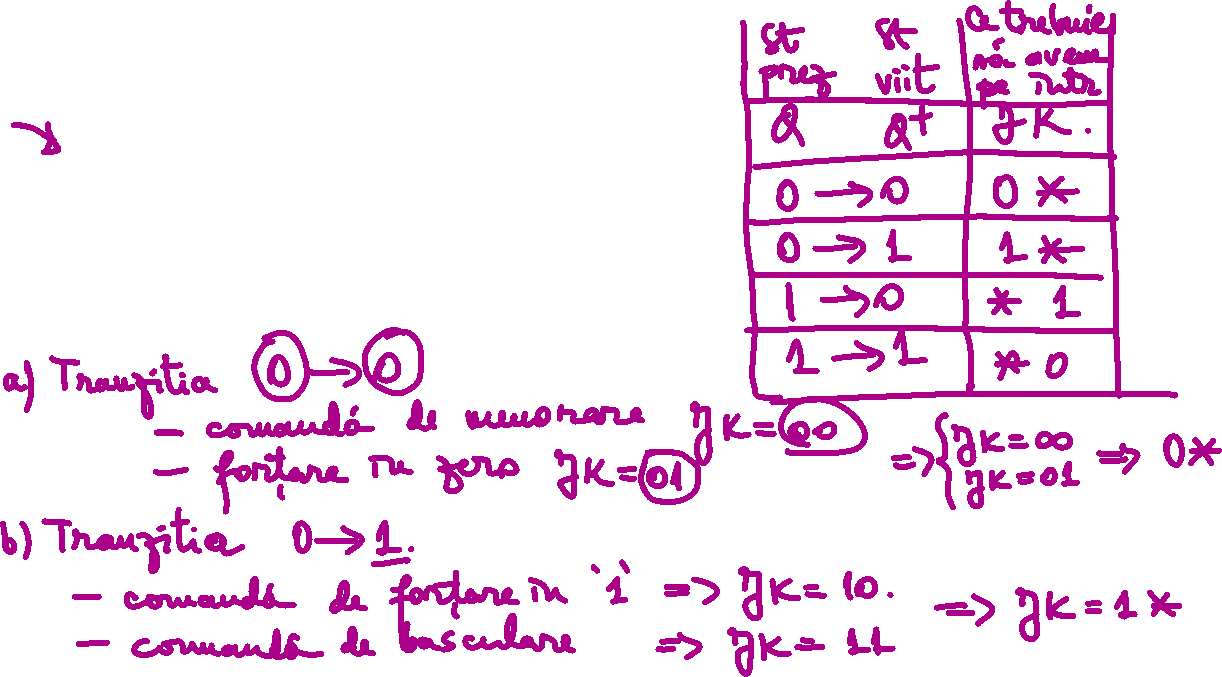 st prez st viit Ce trebuie să avem pe intr
Q Q+ JK.
0 → 0 0 *
0 → 1 1 *
1 → 0 * 1
1 → 1 * 0
a) Tranziția 0 → 0
– comandă de memorare JK = 00
– forțare în zero JK = 01
=> { JK = 00
JK = 01
=> 0*
b) Tranziția 0 → 1.
– comandă de forțare în '1' => JK = 10.
– comandă de basculare => JK = 11
=> JK = 1 *